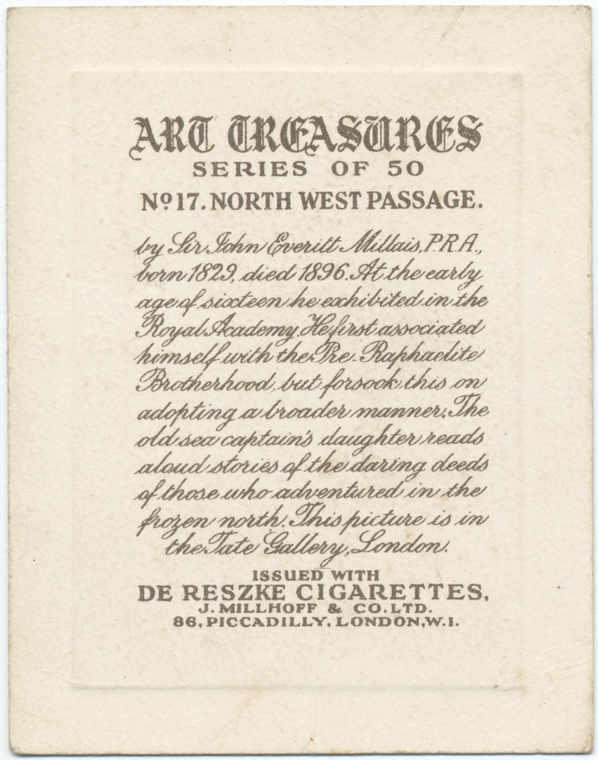 ART TREASURES
SERIES OF 50
Nº 17. NORTH WEST PASSAGE.
by Sir John Everitt Millais, P.R.A.,
born 1829, died 1896. At the early
age of sixteen he exhibited in the
Royal Academy. He first associated
himself with the Pre-Raphaelite
Brotherhood, but forsook this on
adopting a broader manner. The
old sea captain's daughter reads
aloud stories of the daring deeds
of those who adventured in the
frozen north. This picture is in
the Tate Gallery, London.
ISSUED WITH
DE RESZKE CIGARETTES,
J. MILLHOFF & CO. LTD.
86, PICCADILLY, LONDON, W.1.